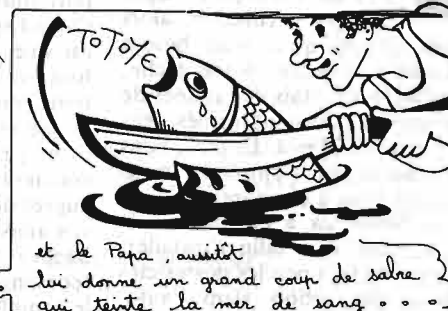 TOTOYE
et le Papa, aussitôt
lui donne un grand coup de sabre
qui teinte la mer de sang...